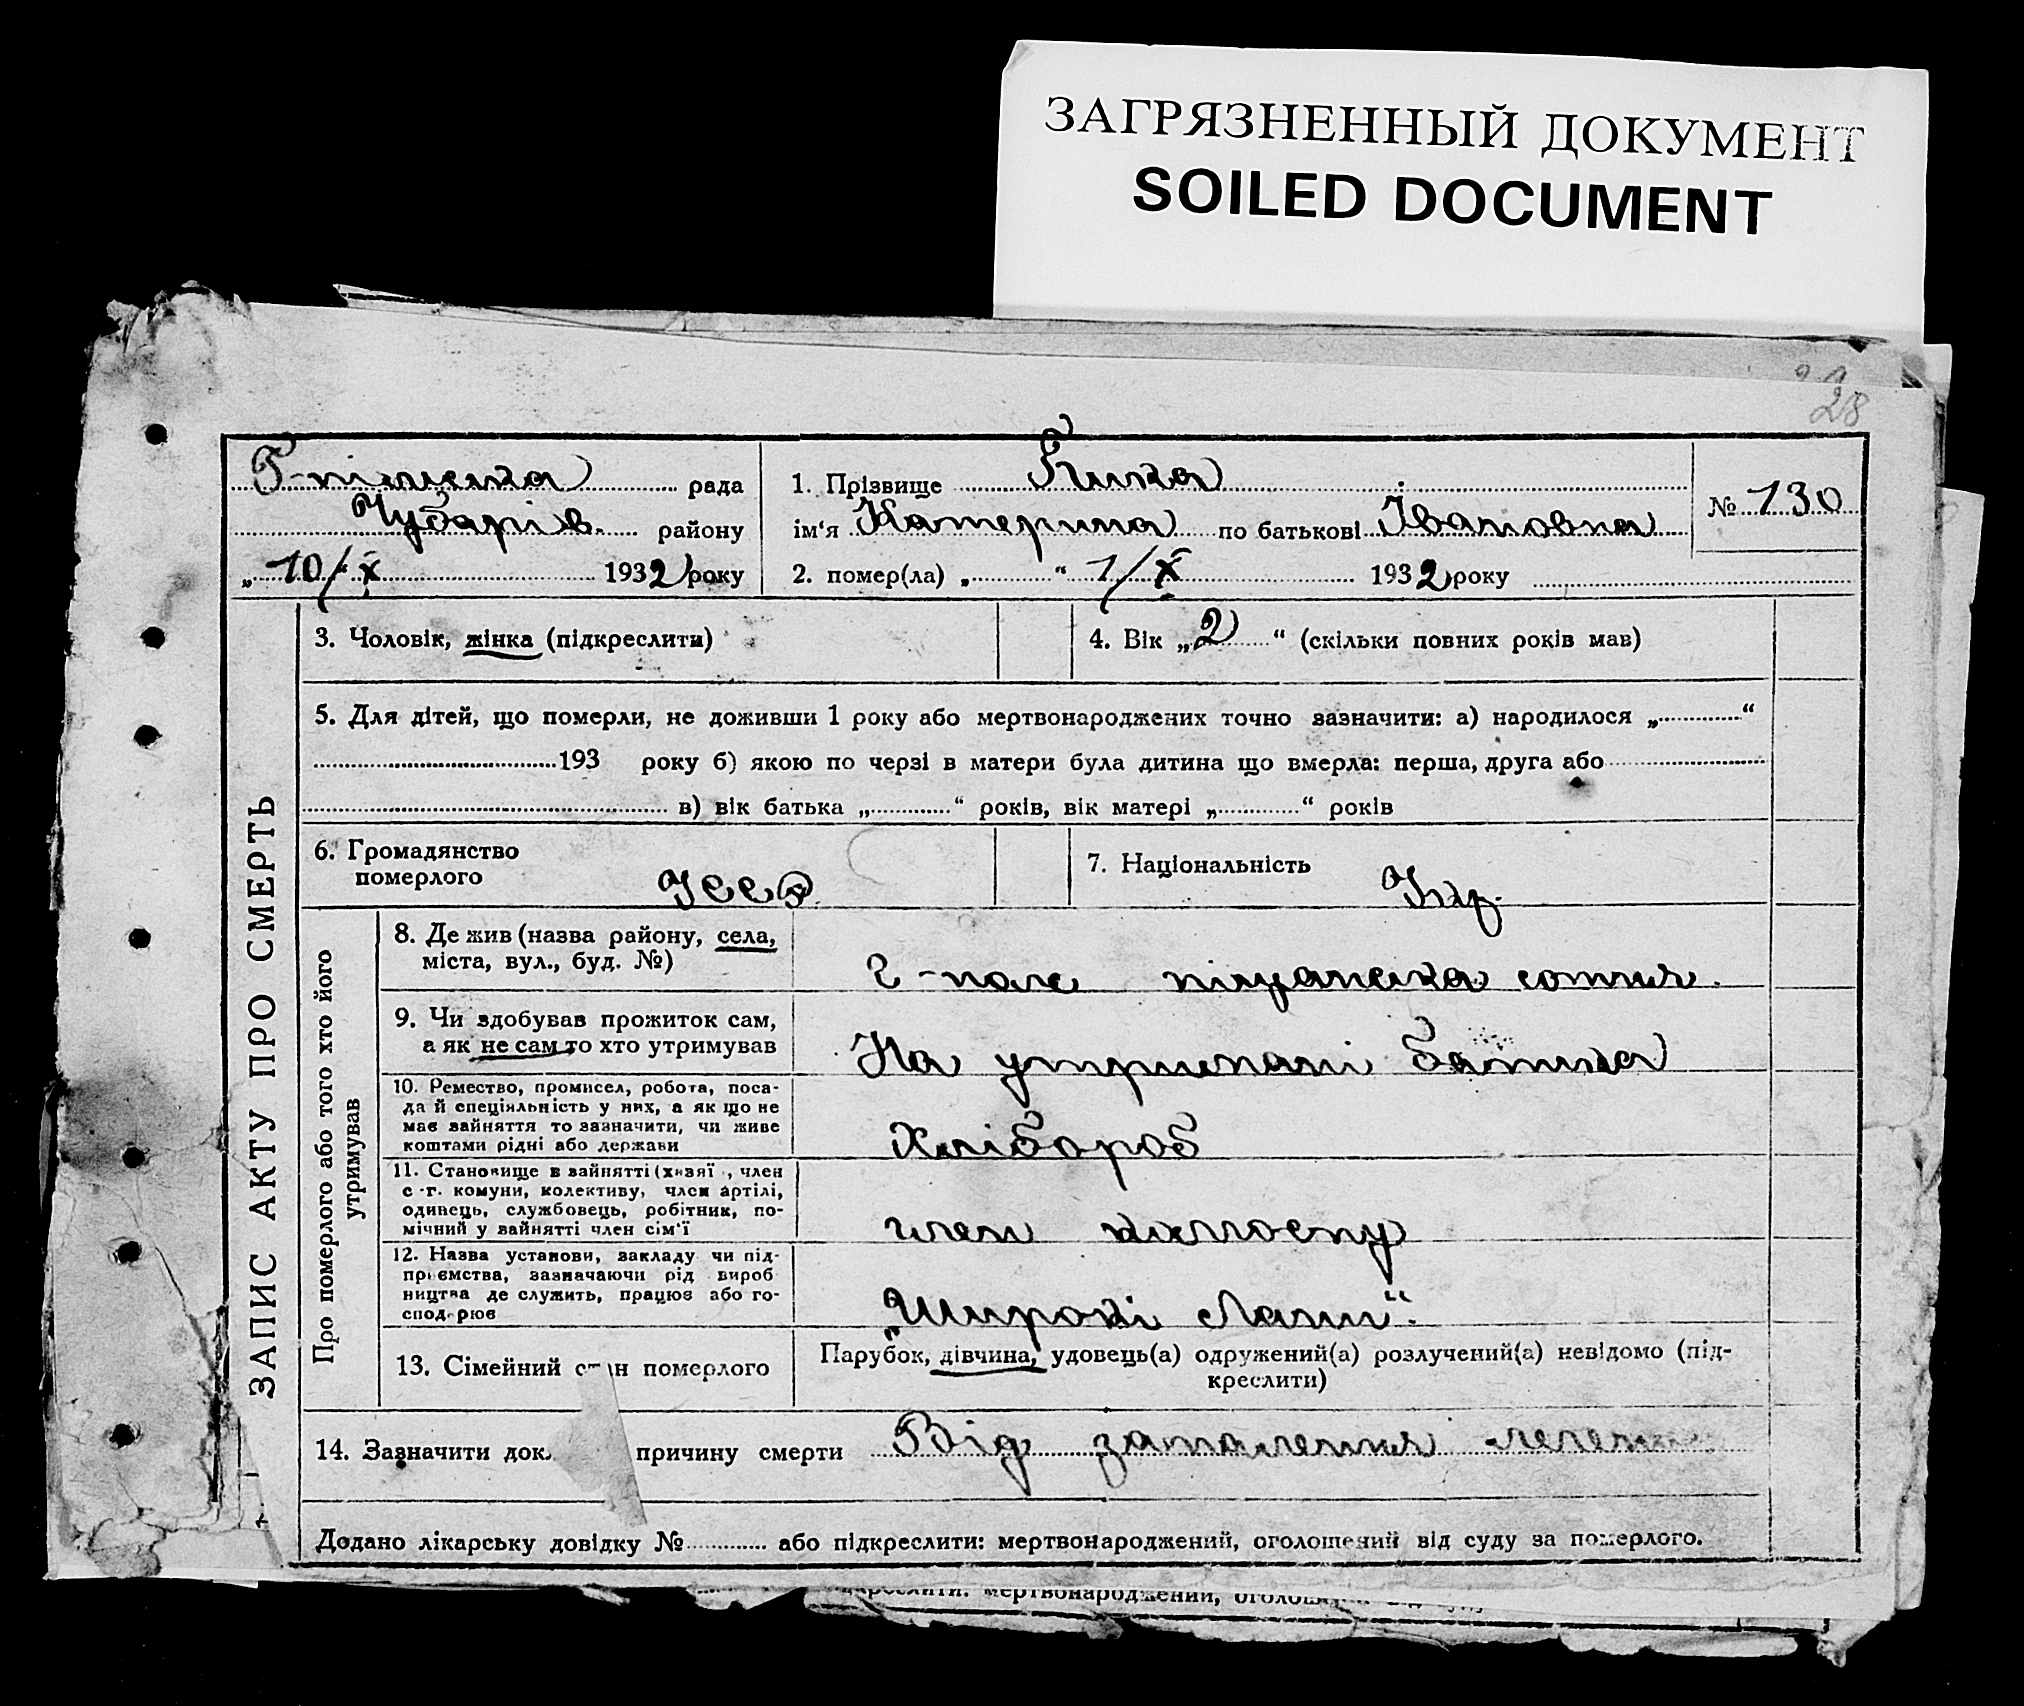 ЗАГРЯЗНЕННЫЙ ДОКУМЕНТ
SOILED DOCUMENT
28
рада
Чубарів. району
„10/X 1932 року
1. Прізвище
ім‘я Катерина по батькові Івановна
2. помер(ла) „ “ 1/X 1932 року
№ 130
ЗАПИС АКТУ ПРО СМЕРТЬ
3. Чоловік, жінка (підкреслити)
4. Вік „2“ (скільки повних років мав)
5. Для дітей, що померли, не доживши 1 року або мертвонароджених точно зазначити: а) народилося „ “
193 року б) якою по черзі в матери була дитина що вмерла: перша, друга або
в) вік батька „ “ років, вік матері „ “ років
6. Громадянство
померлого
УССР
7. Національність
Укр.
Про померлого або того хто його
утримував
8. Де жив (назва району, села,
міста, вул., буд. №)
Г-поле піщанська сотня.
9. Чи здобував прожиток сам,
а як не сам то хто утримував
На утримані батька
10. Ремество, промисел, робота, поса-
да й спеціяльність у них, а як що не
має зайняття то зазначити, чи живе
коштами рідні або держави
Хлібороб
11. Становище в зайнятті (хазяї , член
с-г. комуни, колективу, член артілі,
одинець, службовець, робітник, по-
мічний у зайнятті член сім‘ї
член колгоспу
12. Назва установи, закладу чи під-
приємства, зазначаючи рід вироб
ництва де служить, працює або го-
сподарює
„Широкі Лани“.
13. Сімейний стан померлого
Парубок, дівчина, удовець(а) одружений(а) розлучений(а) невідомо (під-
креслити)
14. Зазначити док причину смерти Від запалення легенів
Додано лікарську довідку № або підкреслити: мертвонароджений, оголошений від суду за померлого.
мертвонароджений,